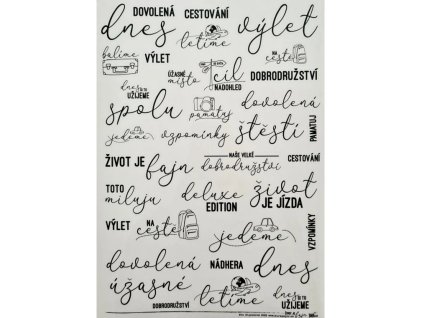 DOVOLENÁ
CESTOVÁNÍ
dnes
letíme
výlet
balíme
VÝLET
na cestě
ÚŽASNÉ místo
cíl
NADOHLED
DOBRODRUŽSTVÍ
dnes si to UŽIJEME
spolu
pamatuj
dovolená
jedeme
vzpomínky
štěstí
PAMATUJ
ŽIVOT JE
fajn
NAŠE VELKÉ
dobrodružství
CESTOVÁNÍ
TOTO
miluju
deluxe
EDITION
život
JE JÍZDA
VÝLET
NA
cestě
jedeme
VZPOMÍNKY
dovolená
NÁDHERA
dnes
úžasné
DOBRODRUŽSTVÍ
letíme
dnes si to
UŽIJEME